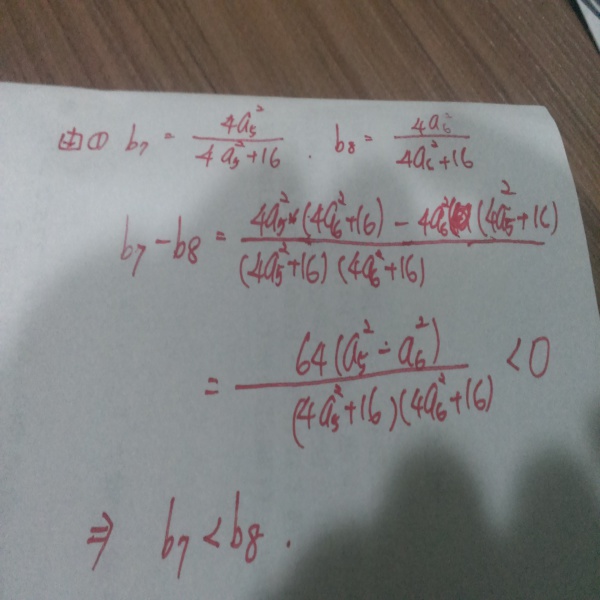 由① b₇ = 4a₅² / (4a₅²+16) . b₈ = 4a₆² / (4a₆²+16)
b₇-b₈ = (4a₅²·(4a₆²+16) - 4a₆²(4a₅²+16)) / ((4a₅²+16)(4a₆²+16))
= 64(a₅²-a₆²) / ((4a₅²+16)(4a₆²+16)) <0
⇒ b₇<b₈.